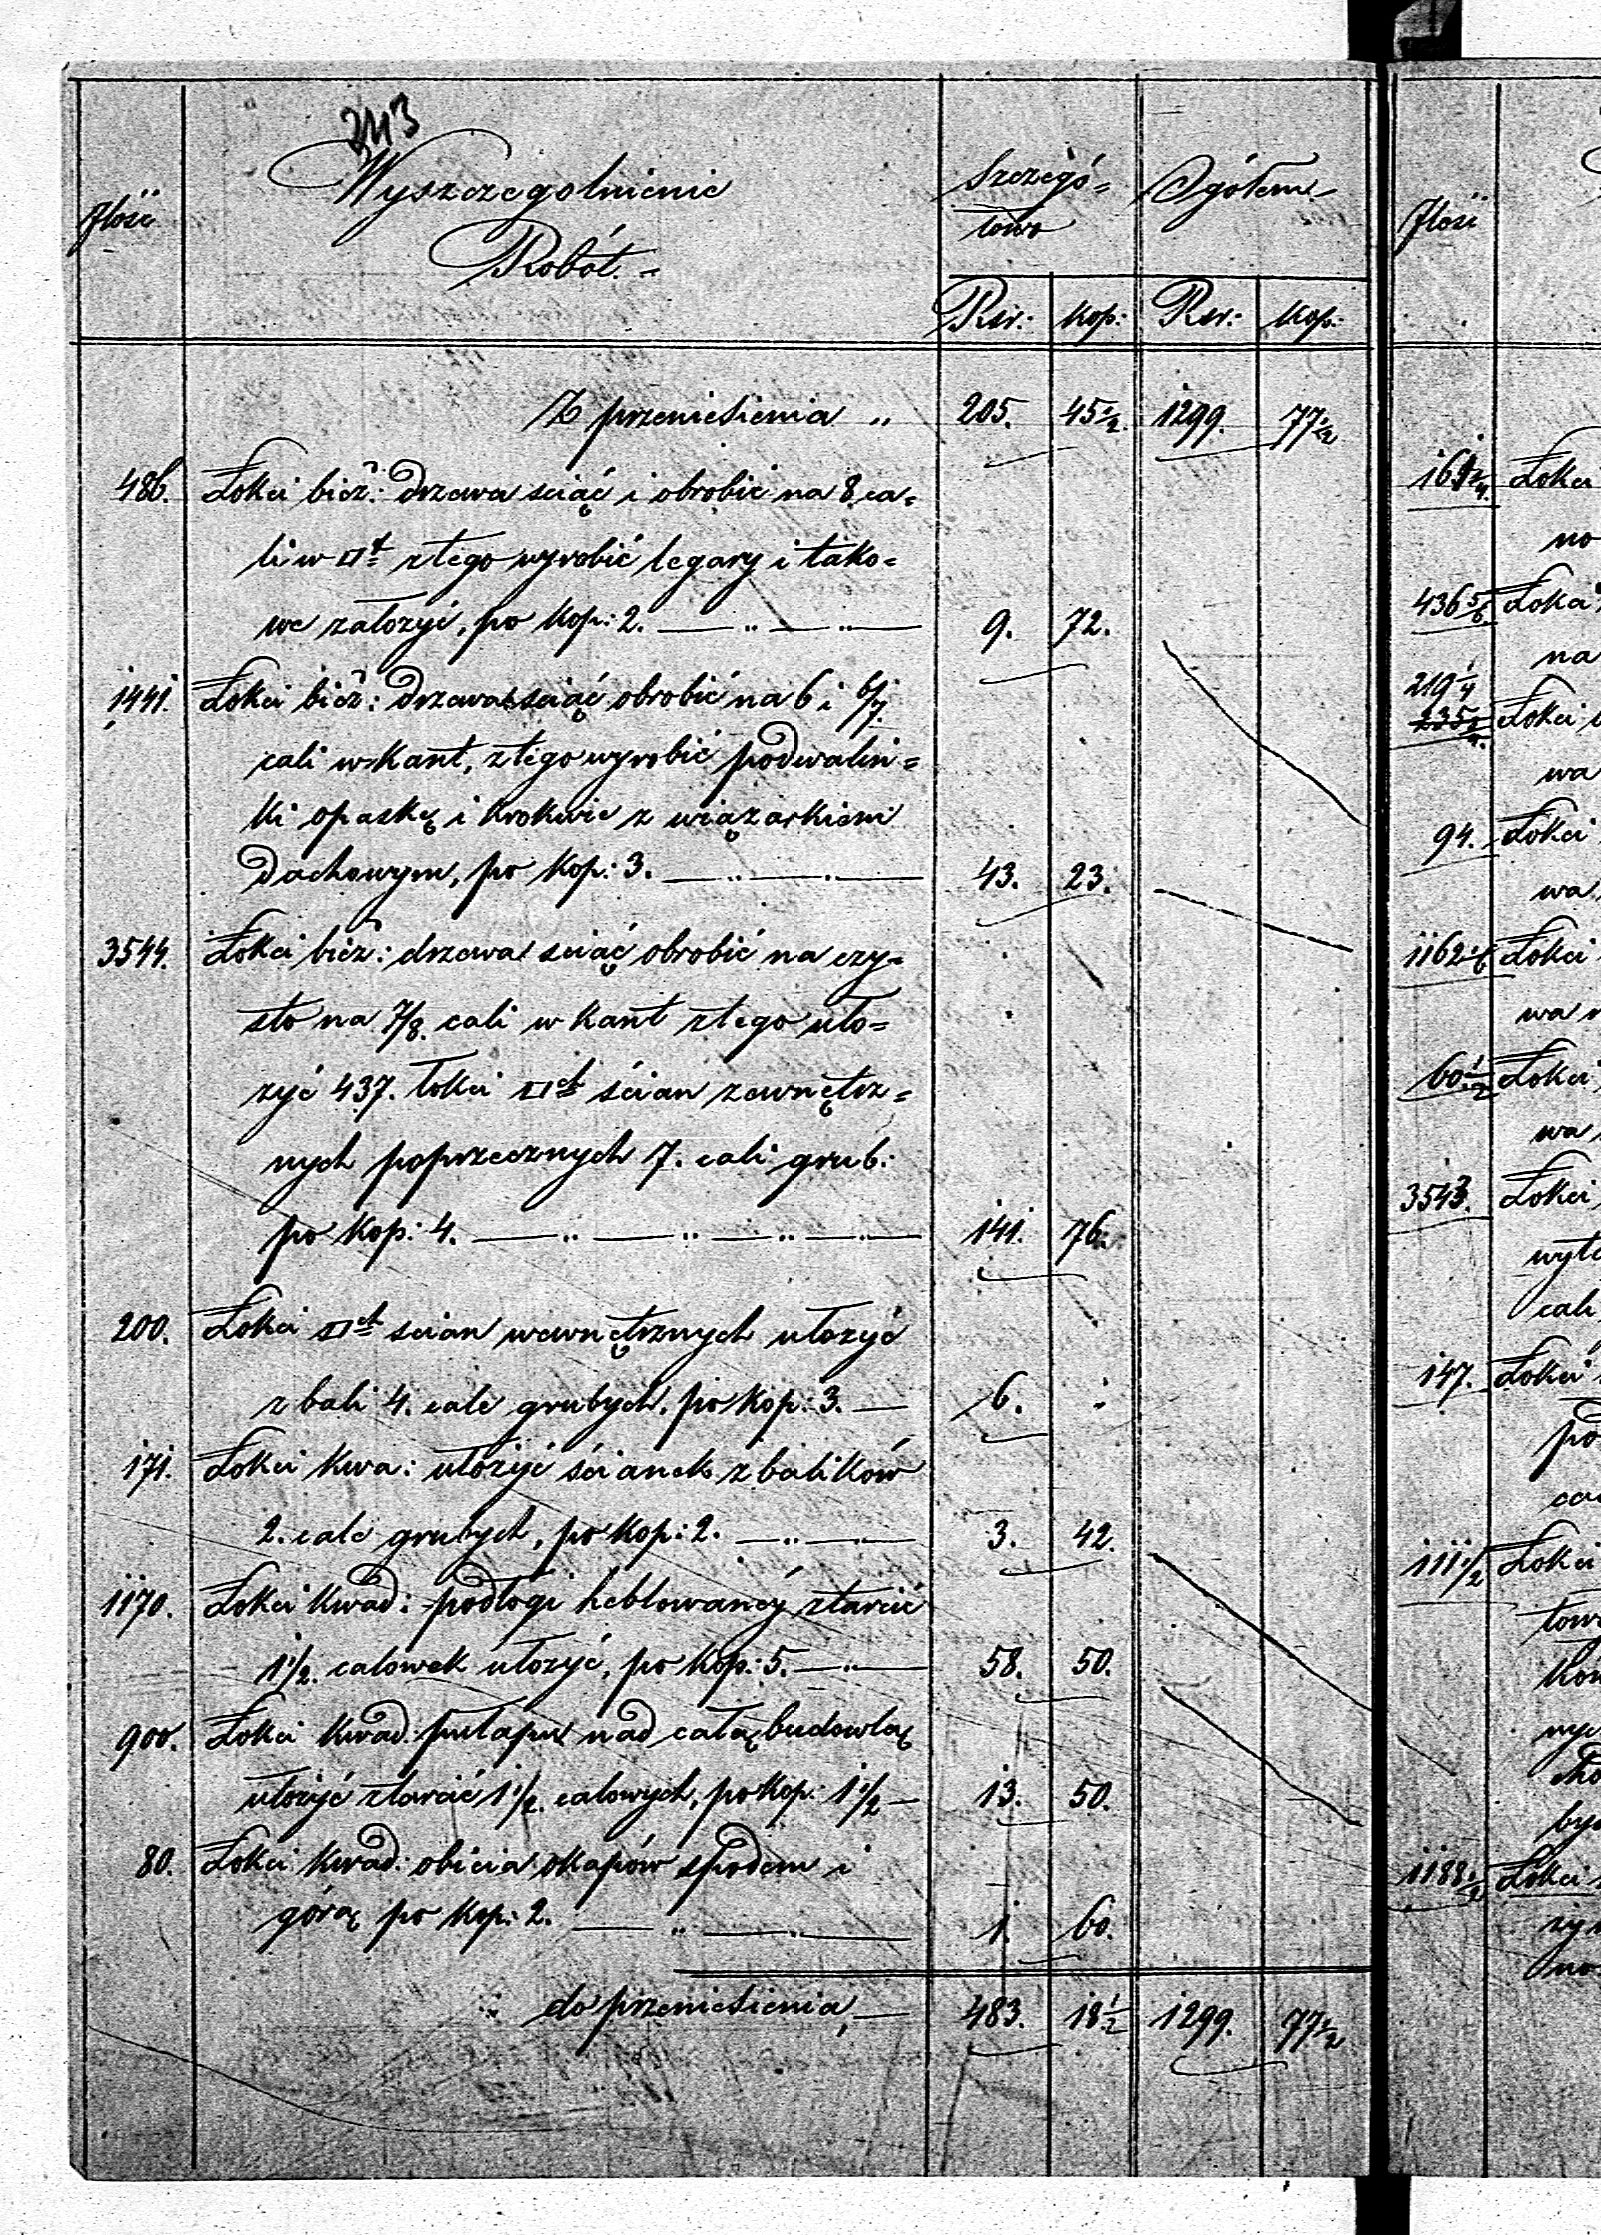 243
Ilość
Wyszczegolnienie
Robót. =
Szczegó=
łowo
Ogółem
Rsr: kop: Rsr: kop:
Z przeniesienia „ 205. 45 1/2. 1299. 77 1/2
486. Łokci bież: drzewa sciąć i obrobić na 8 ca=
li w □t z tego wyrobić legary i tako=
we założyć, po kop: 2. — „ — „ — 9. 72.
1441. Łokci bież: drzewa sciąć obrobić na 6 i 6/7.
cali w kant, z tego wyrobić podwalin=
ki opaskę i krokwie z wiązarkiem
dachowym, po kop: 3. — „ — „ — 43. 23.
3544. Łokci bież: drzewa sciąć obrobić na czy=
sto na 7/8. cali w kant z tego uło=
żyć 437. łokci □ch ścian zewnętrz=
nych poprzecznych 7. cali grub:
po kop: 4. — „ — „ — „ — „ — 141. 76.
200. Łokci □ch scian wewnętrznych ułożyć
z bali 4. cale grubych, po kop: 3. — 6. "
171. Łokci kwa: ułożyć ścianek z balików
2. cale grubych, po kop: 2. — „ — „ — 3. 42.
1170. Łokci kwad: podłogi heblowanéj z tarcic
1 1/2. calowek ułożyć, po kop: 5. — „ — 58. 50.
900. Łokci kwad: pułapu nad całą budowlą
ułożyć z tarcic 1 1/2. calowych, po kop: 1 1/2 — 13. 50.
80. Łokci kwad: obicia okapów spodem i
górą po kop: 2. — „ — „ — 1. 60.
do przeniesienia, — 483. 18 1/2 1299. 77 1/2
Ilość
Łokci
no
436 5/6. Łokci
na
219 1/4
Łokci
wa
94. Łokci
wa
1162 Łokci
wa
60 1/2 Łokci
wa
3543. Łokci
cali
147. Łokci
po
111 1/2 Łokci
nych
1188 1/2 Łokci
no